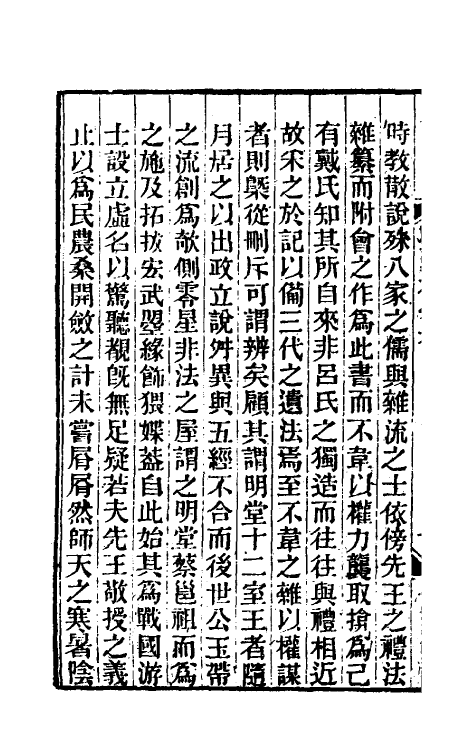 時教散說殊八家之儒與雜流之士依傍先王之禮法
雜纂而附會之作爲此書而不韋以權力襲取搶爲己
有戴氏知其所自來非呂氏之獨造而往往與禮相近
故采之於記以備三代之遺法焉至不韋之雜以權謀
者則槩從刪斥可謂辨矣顧其謂明堂十二室王者隨
月居之以出政立說舛異與五經不合而後世公玉帶
之流創爲欹側零星非法之屋謂之明堂蔡邕祖而爲
之施及拓拔宏武曌緣飾猥媟葢自此始其爲戰國游
士設立虛名以驚聽覩旣無足疑若夫先王敬授之義
止以爲民農桑開斂之計未嘗屑屑然師天之寒暑陰